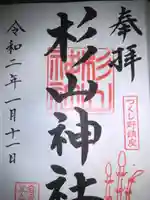 奉拝
つくし野鎮座
杉山神社
令和二年一月十一日